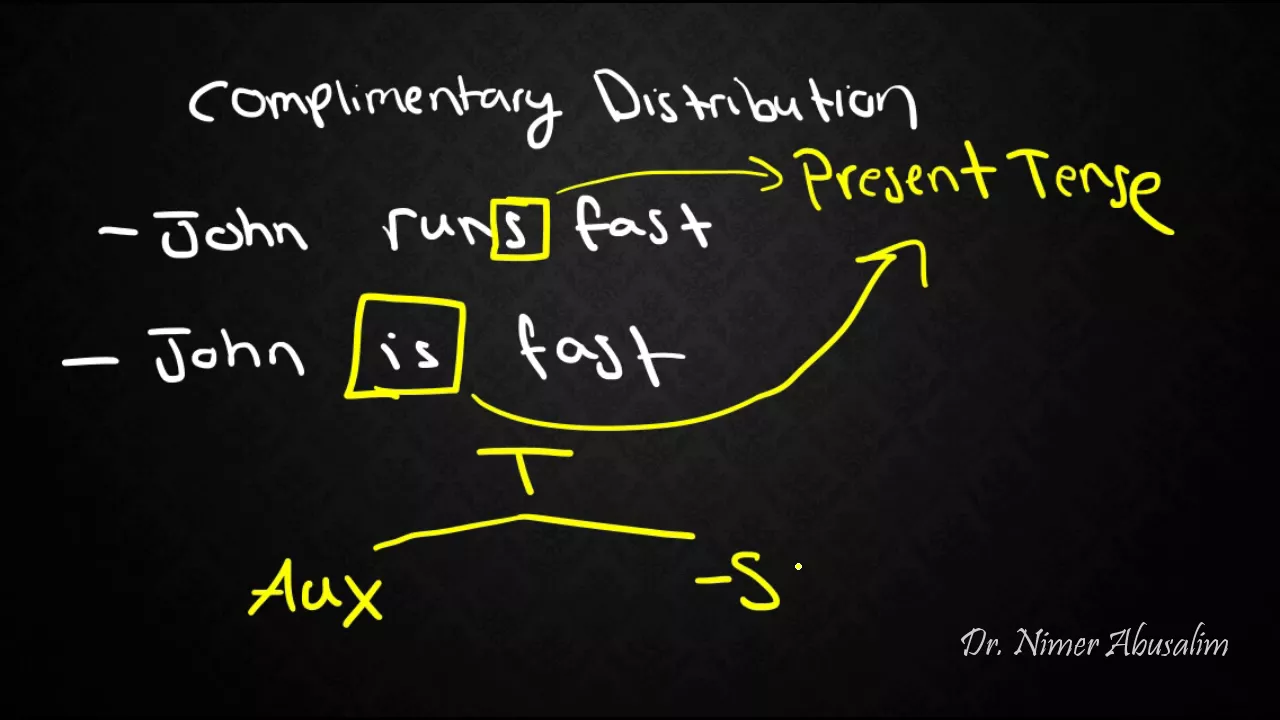 Complimentary Distribution
Present Tense
- John runs fast
- John is fast
T
Aux -S
Dr. Nimer Abusalim